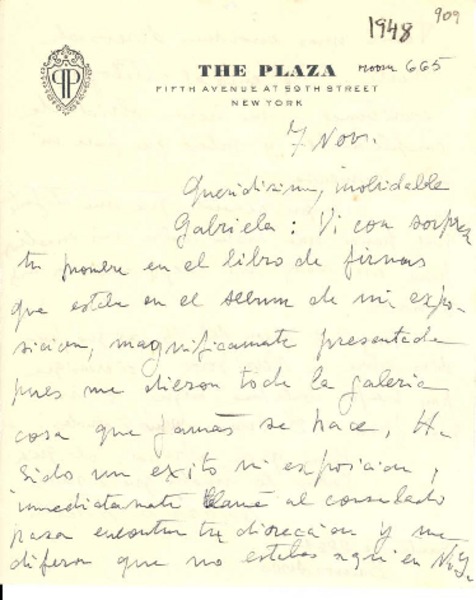 1948 909
THE PLAZA room 665
FIFTH AVENUE AT 59TH STREET
NEW YORK
7 Nov.
Queridisima, inolvidable
Gabriela: Vi con sorpresa
tu nombre en el libro de firmas
que estaba en el album de mi expo-
sicion, magnificamente presentada
pues me dieron toda la galeria
cosa que jamás se hace, Ha
sido un exito mi exposicion,
inmediatamente llamé al consulado
para encontrar tu direccion y me
dijeron que no estabas aqui en N.Y.